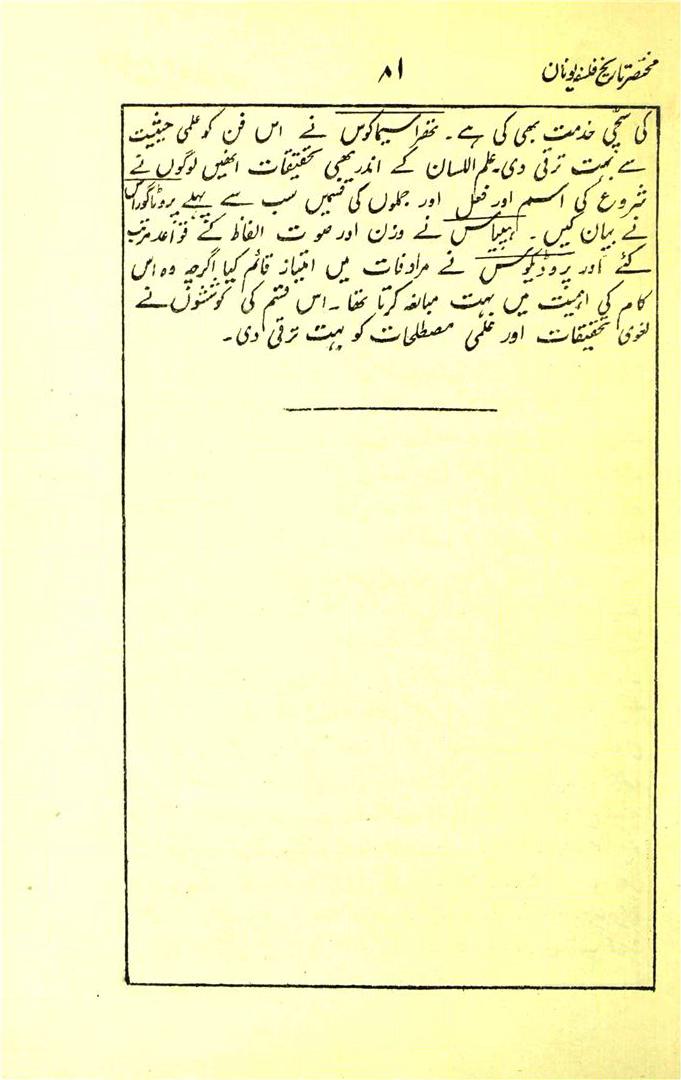 مختصر تاریخ فلسفہ یونان ۸۱
کی سچی خدمت بھی کی ہے۔ تھراسیماکوس نے اس فن کو علمی حیثیت
سے بہت ترقی دی۔ علم اللسان کے اندر بھی تحقیقات انھیں لوگوں نے
شروع کی اسم اور فعل اور جملوں کی قسمیں سب سے پہلے پروٹاگوراس
نے بیان کیں۔ ہپیاس نے وزن اور صوت الفاظ کے قواعد مرتب
کئے اور پروڈیکوس نے مرادفات میں امتیاز قائم کیا اگرچہ وہ اس
کام کی اہمیت میں بہت مبالغہ کرتا تھا۔ اس قسم کی کوششوں نے
لغوی تحقیقات اور علمی مصطلحات کو بہت ترقی دی۔